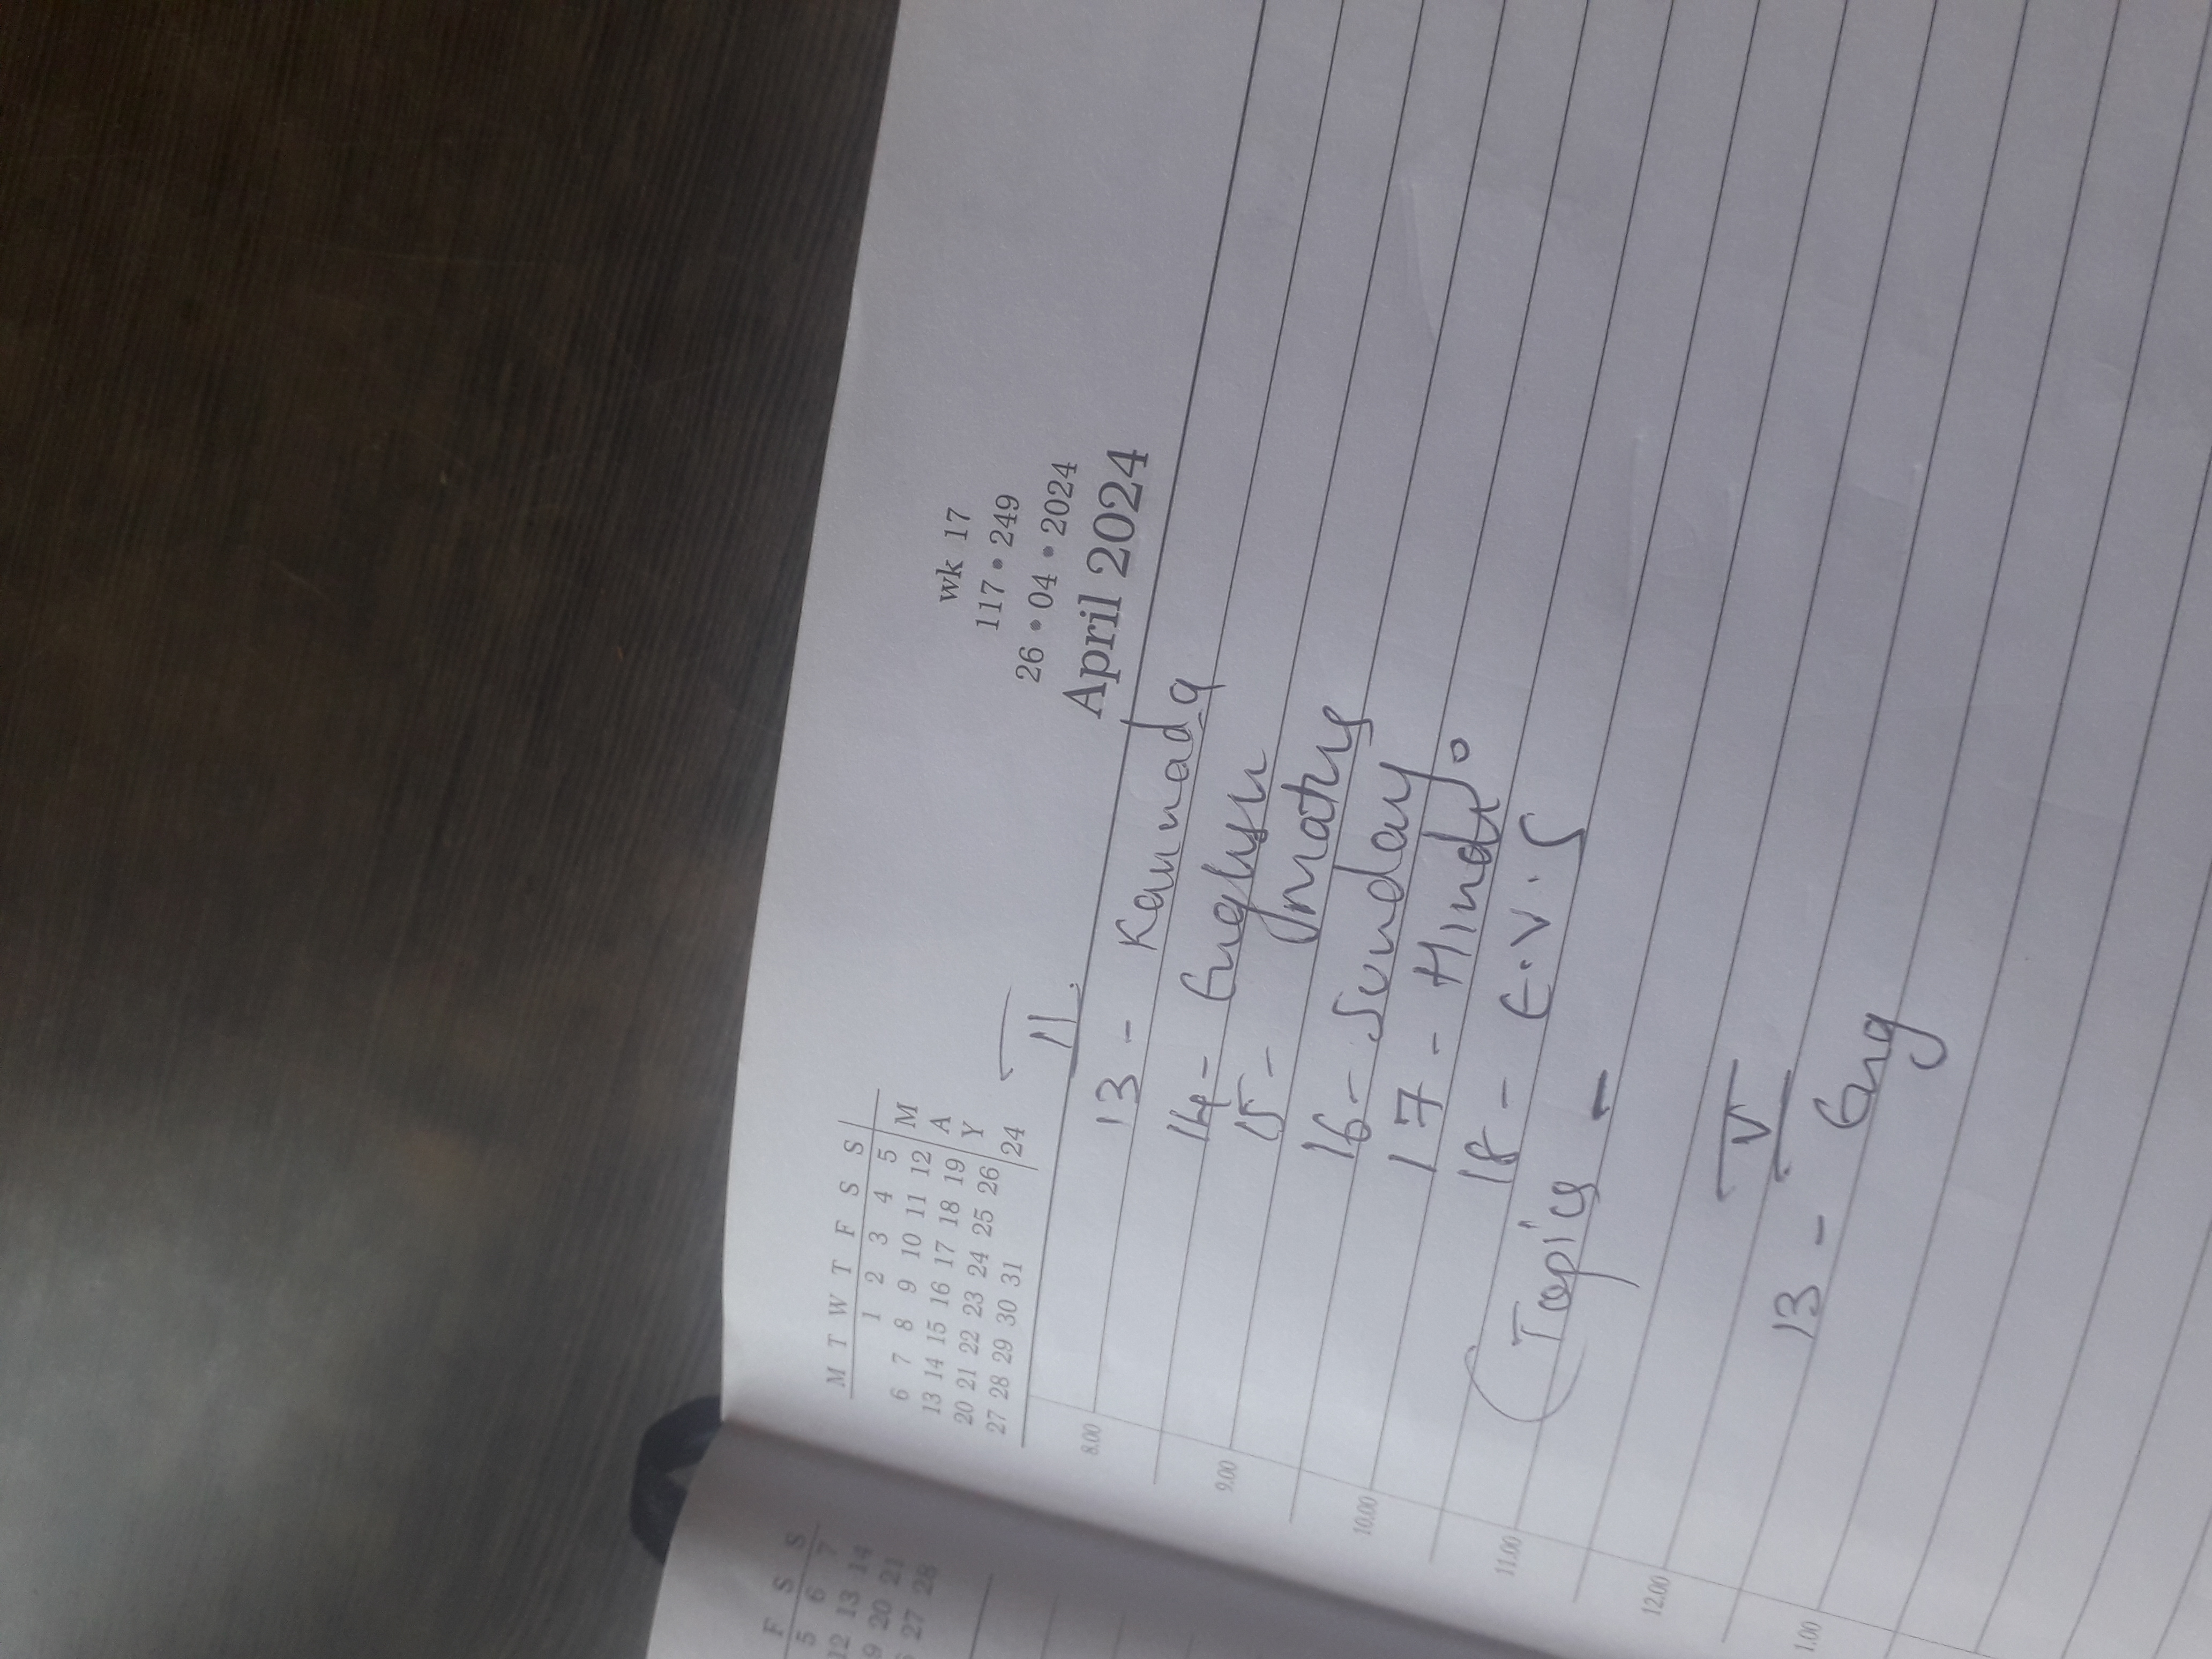 M T W T F S S
1 2 3 4 5
6 7 8 9 10 11 12
13 14 15 16 17 18 19
20 21 22 23 24 25 26
27 28 29 30 31
M
A
Y
24
wk 17
117 • 249
26 • 04 • 2024
April 2024
II
13 - Kannada
14 - English
15 - Maths
16 - Sunday
17 - Hindi
18 - E.V.S
(Topics -
V
13 - Eng
8.00
9.00
10.00
11.00
12.00
1.00
F S S
5 6 7
12 13 14
9 20 21
27 28